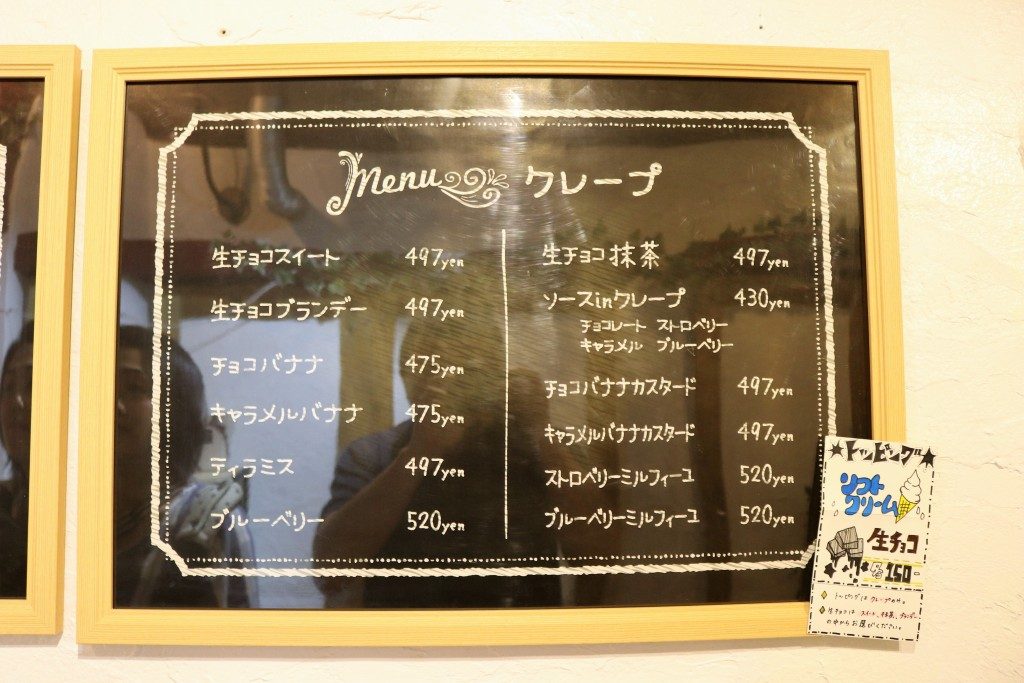 Menu クレープ
生チョコスイート 497yen
生チョコブランデー 497yen
チョコバナナ 475yen
キャラメルバナナ 475yen
ティラミス 497yen
ブルーベリー 520yen
生チョコ抹茶 497yen
ソースinクレープ 430yen
チョコレート ストロベリー
キャラメル ブルーベリー
チョコバナナカスタード 497yen
キャラメルバナナカスタード 497yen
ストロベリーミルフィーユ 520yen
ブルーベリーミルフィーユ 520yen
★トッピング★
ソフト
クリーム
生チョコ
150-
トッピングはクレープのみ。
生チョコは スイート、抹茶、ブランデー
の中からお選びください。